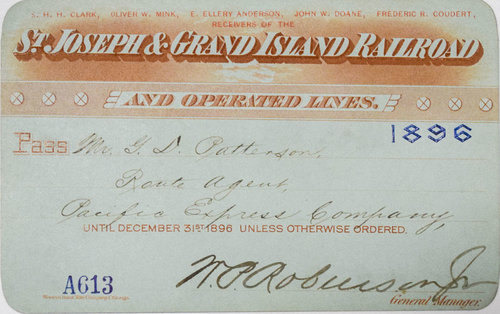 S. H. H. CLARK, OLIVER W. MINK, E. ELLERY ANDERSON, JOHN W. DOANE, FREDERIC R. COUDERT,
RECEIVERS OF THE
ST. JOSEPH & GRAND ISLAND RAILROAD
AND OPERATED LINES.
1896
Pass Mr. Y. D. Patterson,
Route Agent,
Pacific Express Company,
UNTIL DECEMBER 31ST 1896 UNLESS OTHERWISE ORDERED.
A613
W. P. Robinson Jr
General Manager.